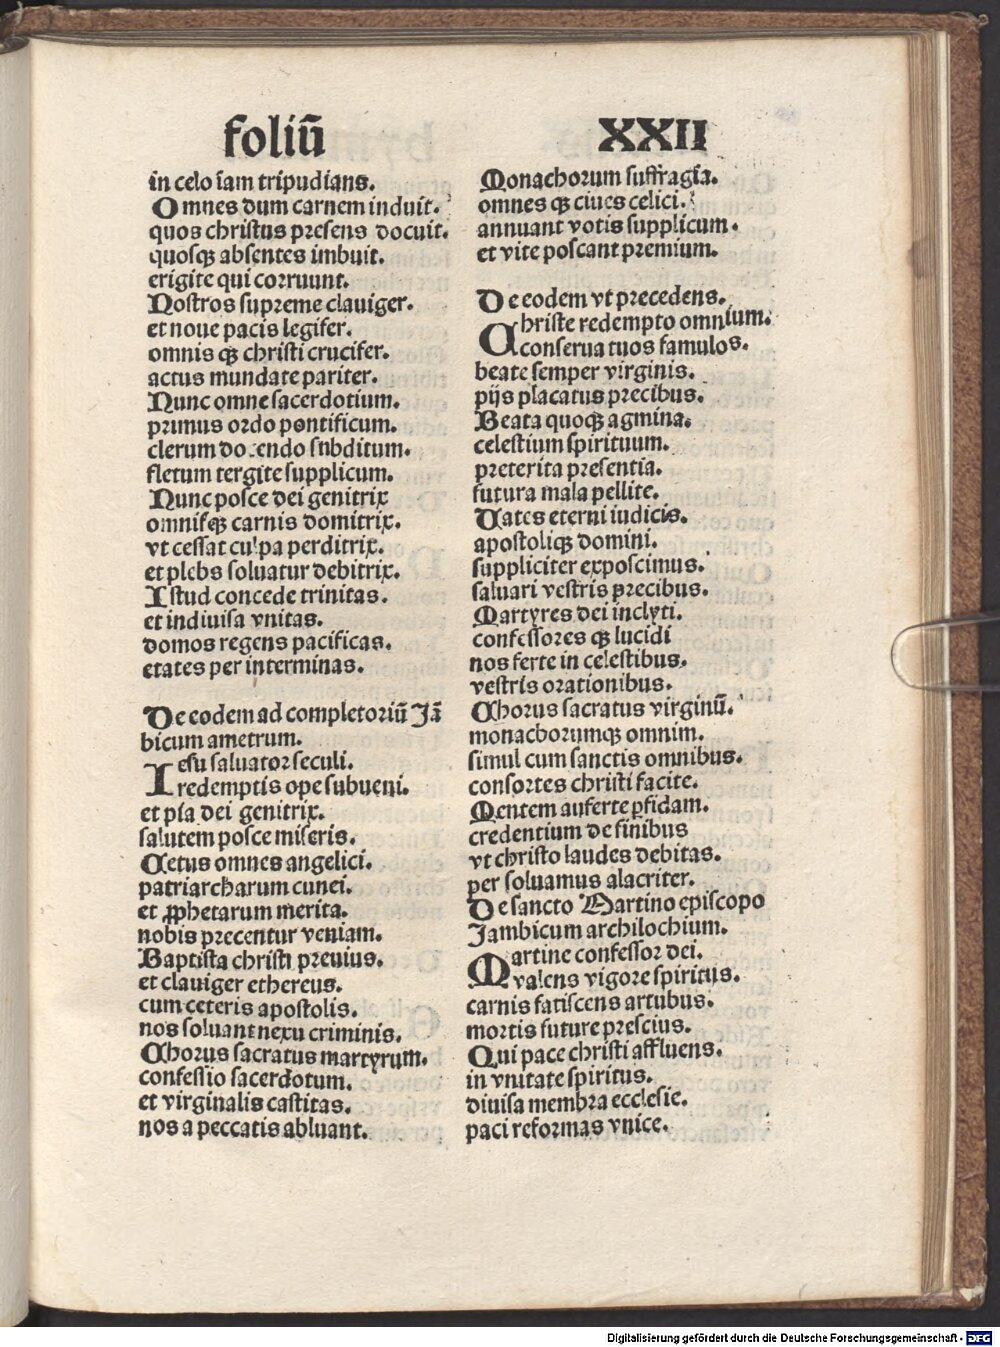 foliū XXII
in celo iam tripudians.
Omnes dum carnem induit.
quos christus presens docuit.
quosqꝫ absentes imbuit.
erigite qui corruunt.
Nostros supreme clauiger.
et noue pacis legifer.
omnis qꝫ christi crucifer.
actus mundate pariter.
Nunc omne sacerdotium.
primus ordo pontificum.
clerum docendo subditum.
fletum tergite supplicum.
Nunc posce dei genitrix
omnisqꝫ carnis domitrix.
vt cessat culpa perditrix.
et plebs soluatur debitrix.
Istud concede trinitas.
et indiuisa vnitas.
domos regens pacificas.
etates per interminas.
De eodem ad completoriū Jā
bicum ametrum.
Iesu saluator seculi.
redemptis ope subueni.
et pia dei genitrix.
salutem posce miseris.
Cetus omnes angelici.
patriarcharum cunei.
et ꝓphetarum merita.
nobis precentur veniam.
Baptista christi preuius.
et clauiger ethereus.
cum ceteris apostolis.
nos soluant nexu criminis.
Chorus sacratus martyrum.
confessio sacerdotum.
et virginalis castitas.
nos a peccatis abluant.
Monachorum suffragia.
omnes qꝫ ciues celici.
annuant votis supplicum.
et vite poscant premium.
De eodem vt precedens.
Christe redempto omnium.
conserua tuos famulos.
beate semper virginis.
pijs placatus precibus.
Beata quoqꝫ agmina.
celestium spirituum.
preterita presentia.
futura mala pellite.
Uates eterni iudicis.
apostoliqꝫ domini.
suppliciter exposcimus.
saluari vestris precibus.
Martyres dei inclyti.
confessores qꝫ lucidi
nos ferte in celestibus.
vestris orationibus.
Chorus sacratus virginū.
monachorumqꝫ omnim.
simul cum sanctis omnibus.
consortes christi facite.
Mentem auferte ꝑfidam.
credentium de finibus
vt christo laudes debitas.
per soluamus alacriter.
De sancto Martino episcopo
Jambicum archilochium.
Martine confessor dei.
valens vigore spiritus.
carnis fatiscens artubus.
mortis future prescius.
Qui pace christi affluens.
in vnitate spiritus.
diuisa membra ecclesie.
paci reformas vnice.
Digitalisierung gefördert durch die Deutsche Forschungsgemeinschaft - DFG